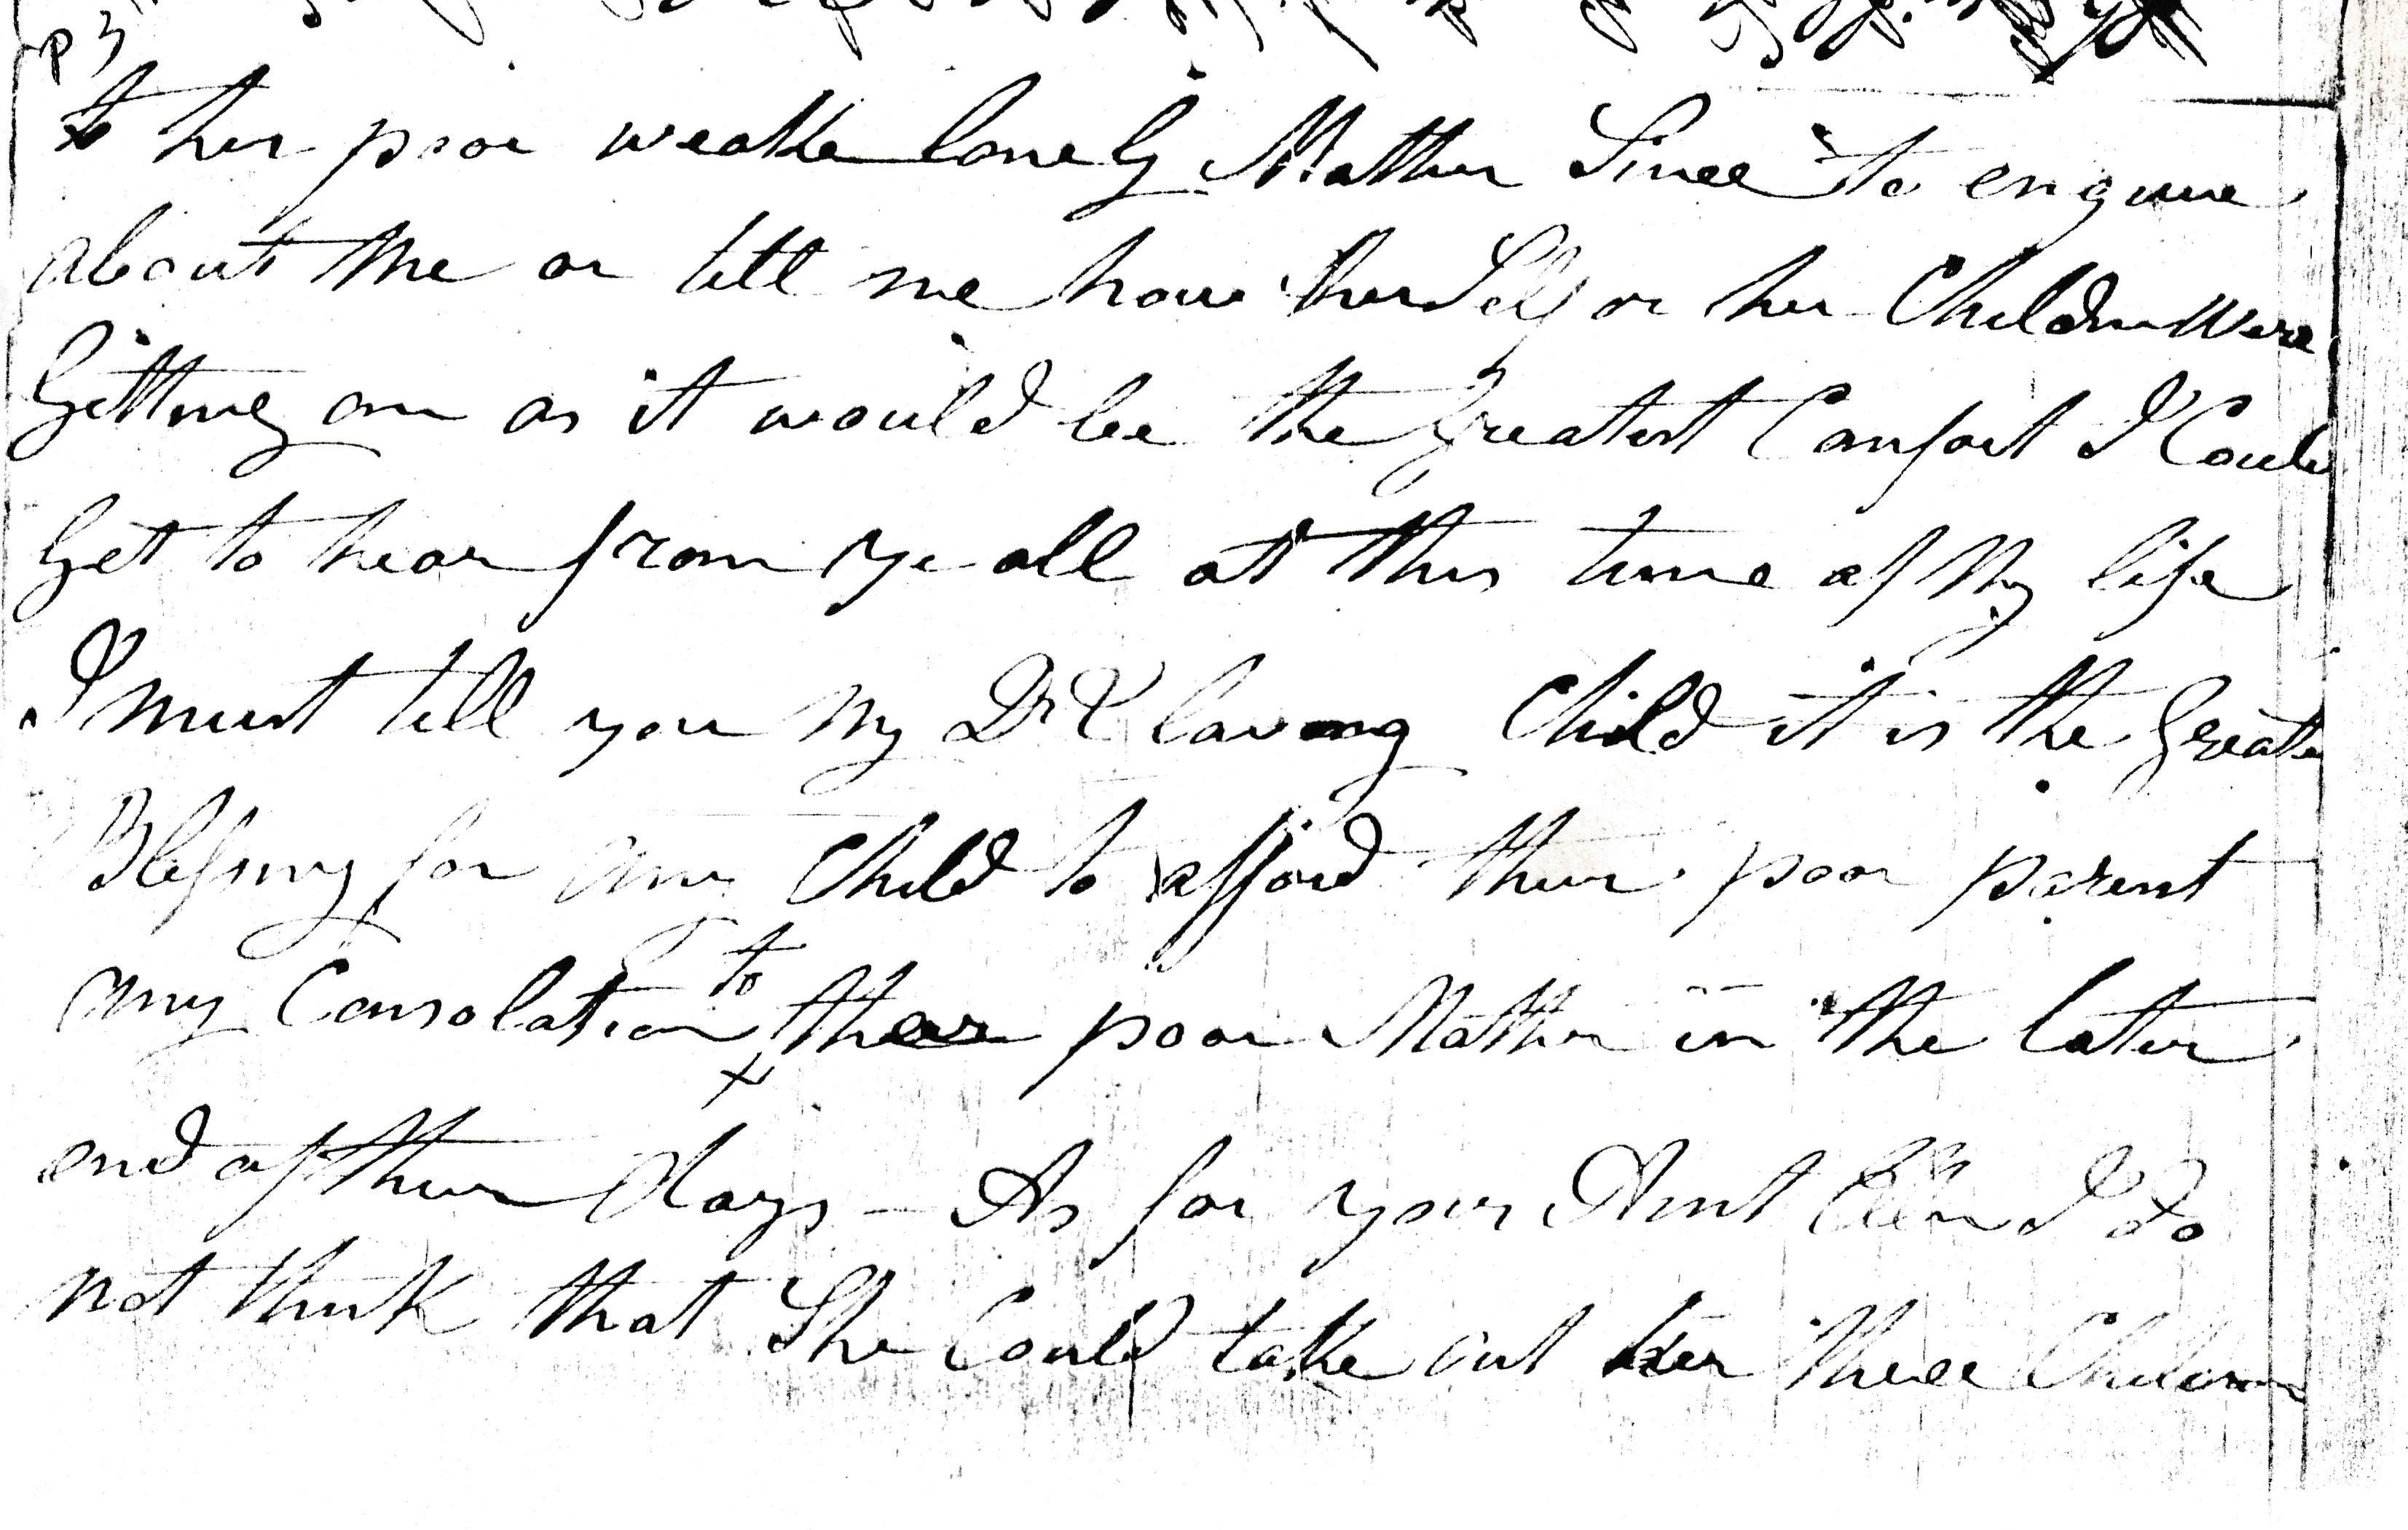 p 3
to her poor weake lonely Mother Since to enquire
about Me or tell me how herself or her Children Were
Getting on as it would be the Greatest Comfort I Could
Get to hear from Ye all at this time of My life
I must tell you My Dr & loving Child it is the Greates
Blessing for any Child to afford their poor parent
any Consolation to their poor Mother in the later
end of their days - As for your Aunt I do
not think that She Could take out her three Children